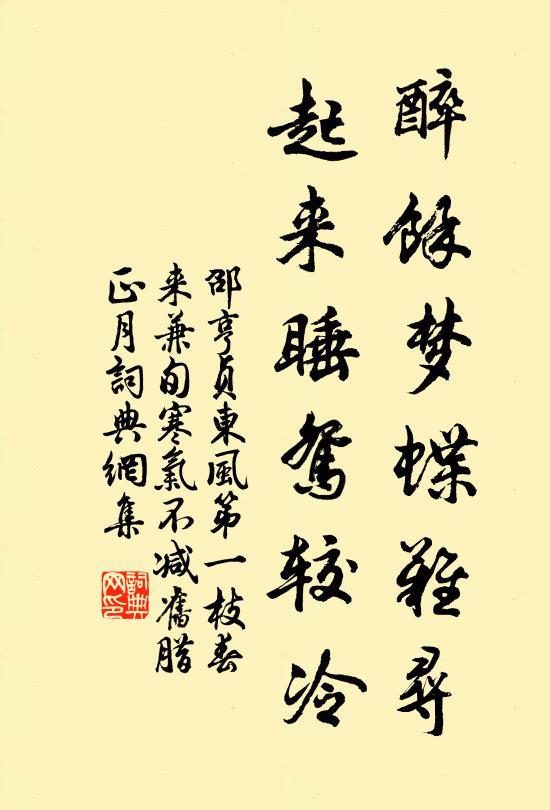 醉餘梦蝶難尋
起来睡鴛較冷
邵亨貞東風第一枝春
来兼旬寒氣不减舊腊
正月詞典網集
詞典网印